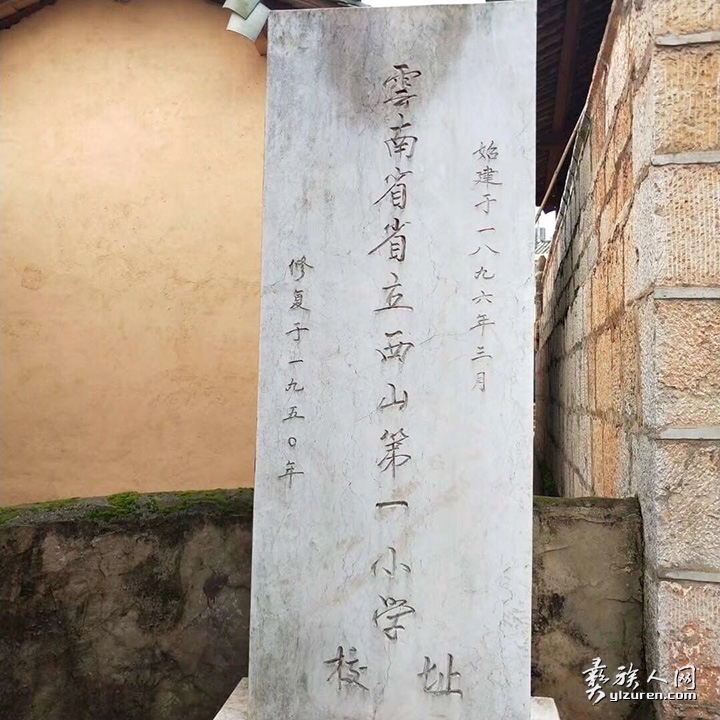 始建于一八九六年三月
雲南省省立西山第一小学
校址
修复于一九五〇年
彝族人网
yizuren.com